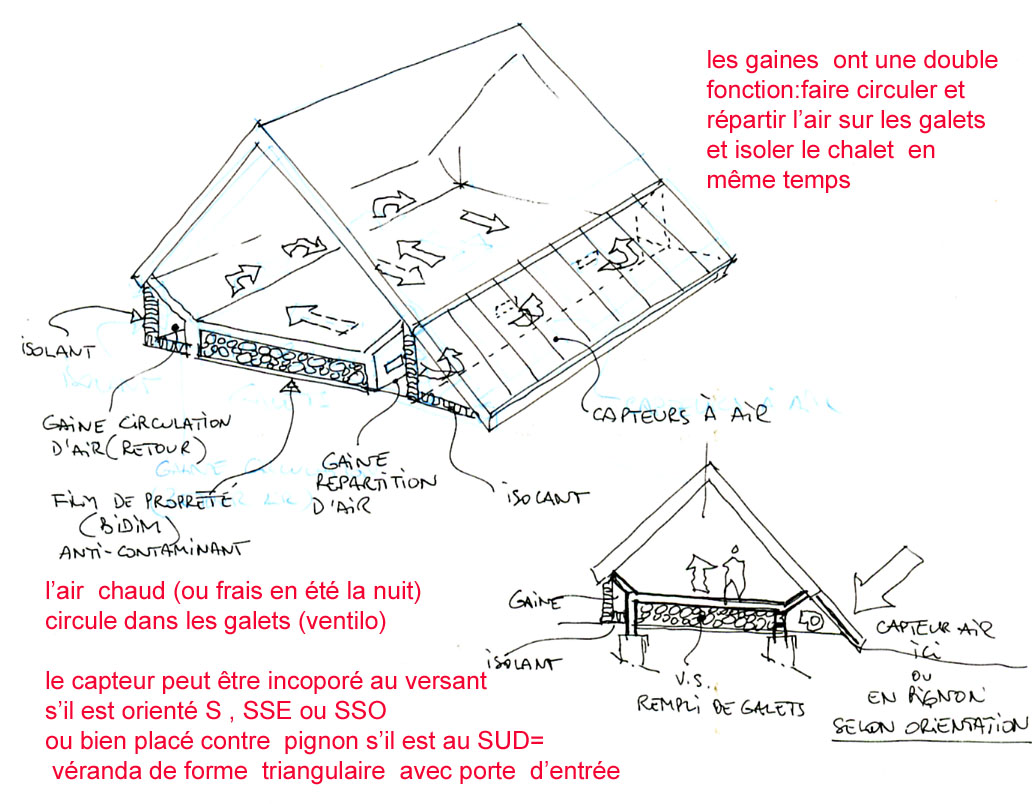 les gaines ont une double
fonction:faire circuler et
répartir l'air sur les galets
et isoler le chalet en
même temps
iSOLANT
GAINE CIRCULATION
D'AIR (RETOUR)
FILM DE PROPRETÉ
(BIDIM)
ANTI-CONTAMINANT
GAINE
REPARTITION
D'AIR
iSOLANT
CAPTEURS À AIR
l'air chaud (ou frais en été la nuit)
circule dans les galets (ventilo)
le capteur peut être incoporé au versant
s'il est orienté S , SSE ou SSO
ou bien placé contre pignon s'il est au SUD=
véranda de forme triangulaire avec porte d'entrée
GAINE
iSOLANT
V.S.
REMPLI DE GALETS
CAPTEUR AIR
ici
OU
EN PIGNON
SELON ORIENTATION